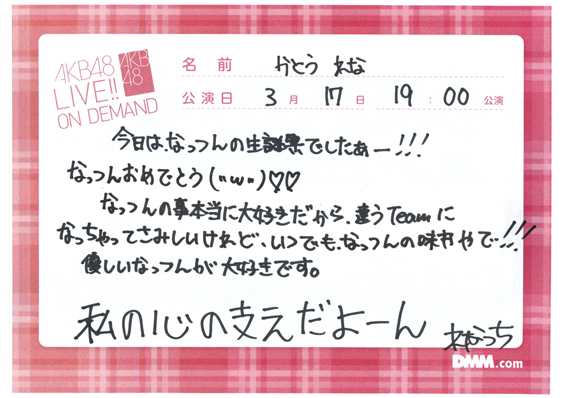 AKB48
LIVE!!
ON DEMAND
AKB
48
名前 かとう れな
公演日 3月 17日 19:00 公演
今日は、なっつんの生誕祭でしたぁー!!!
なっつんおめでとう("ω")♡♡
なっつんの事本当に大好きだから、違うTeamに
なっちゃってさみしいけれど、いつでも、なっつんの味方やで…!!!
優しいなっつんが大好きです。
私の心の支えだよーん
れなっち
DMM.com